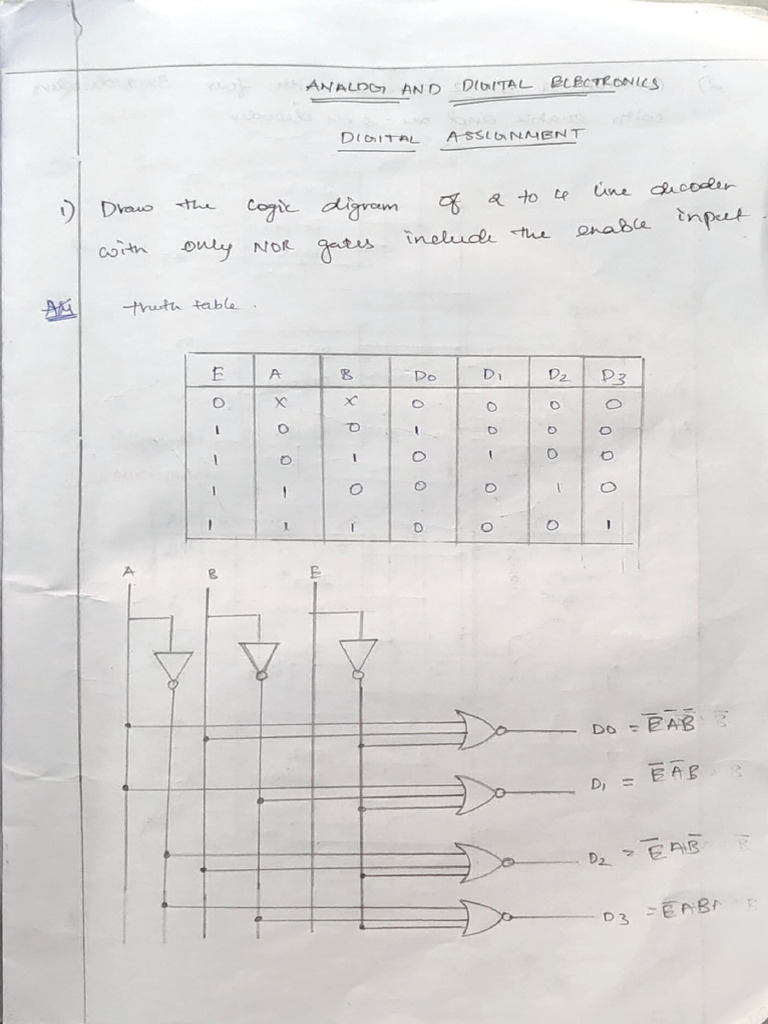 ANALOG AND DIGITAL ELECTRONICS
DIGITAL ASSIGNMENT
1) Draw the logic digram of 2 to 4 line decoder
with only NOR gates include the enable input.
Ans truth table.
E A B D0 D1 D2 D3
0 X X 0 0 0 0
1 0 0 1 0 0 0
1 0 1 0 1 0 0
1 1 0 0 0 1 0
1 1 1 0 0 0 1
A B E
D0 = E̅A̅B̅
D1 = E̅A̅B
D2 = E̅AB̅
D3 = E̅AB